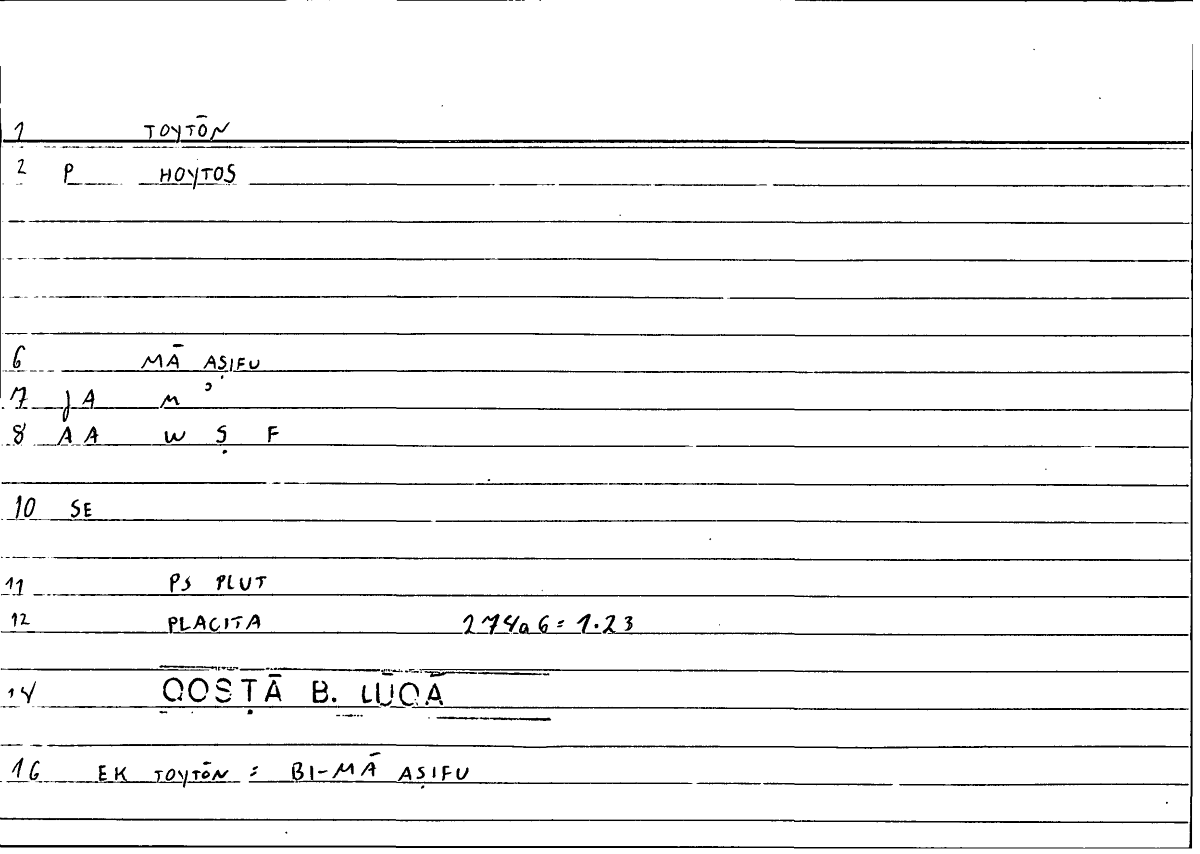 1 TOYTŌN
2 P HOYTOS
6 MĀ AṢIFU
7 JA M ʾ
8 AA W Ṣ F
10 SE
11 PS PLUT
12 PLACITA 274a6=1.23
14 QOSṬĀ B. LŪQĀ
16 EK TOYTŌN = BI-MĀ AṢIFU